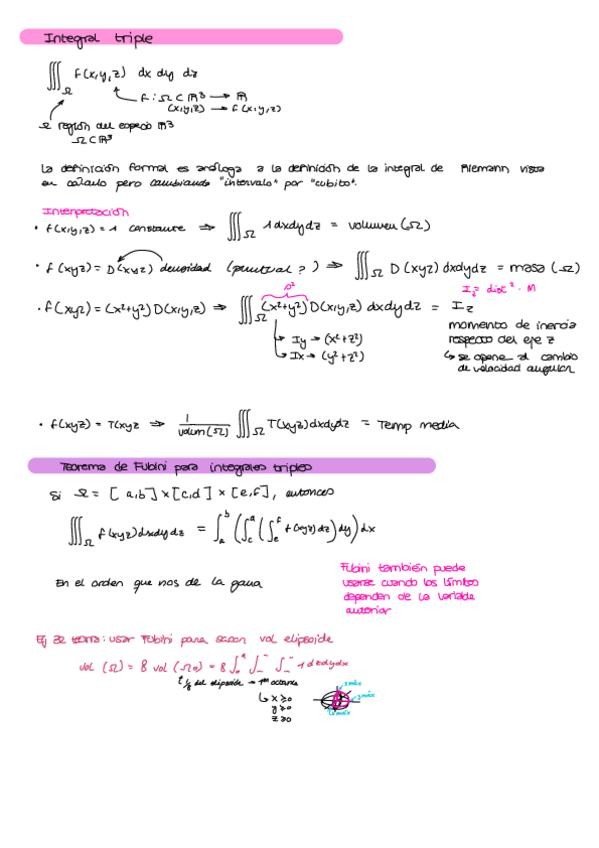 Integral triple
∭_Ω f(x,y,z) dx dy dz
f: Ω ⊂ ℝ³ → ℝ
(x,y,z) → f(x,y,z)
Ω región del espacio ℝ³
Ω ⊂ ℝ³
La definición formal es análoga a la definición de la integral de Riemann vista
en cálculo pero cambiando "intervalo" por "cubito".
Interpretación
• f(x,y,z) = 1 constante ⇒ ∭_Ω 1 dxdydz = volumen (Ω)
• f(xyz) = D(xyz) densidad (puntual?) ⇒ ∭_Ω D(xyz) dxdydz = masa (Ω)
• f(xyz) = (x²+y²) D(x,y,z) ⇒ ∭_Ω (x²+y²) D(x,y,z) dxdydz = I_z
I_z = dist² · M
momento de inercia
respecto del eje z
↳ se opone al cambio
de velocidad angular
Iy → (x²+z²)
Ix → (y²+z²)
• f(xyz) = T(xyz ⇒ 1/volum(Ω) ∭_Ω T(xyz) dxdydz = Temp media
Teorema de Fubini para integrales triples
Si Ω = [a,b] × [c,d] × [e,f], entonces
∭_Ω f(xyz) dxdydz = ∫_a^b (∫_c^d (∫_e^f f(xyz) dz) dy) dx
En el orden que nos de la gana
Fubini también puede
usarse cuando los límites
dependen de la variable
anterior
vol (Ω) = 8 vol (Ω₀) = 8 ∫₀^a ∫_–^– ∫_–^– 1 dzdydx
1/8 del elipsoide → 1er octante
↳ x ≥ 0
y ≥ 0
z ≥ 0